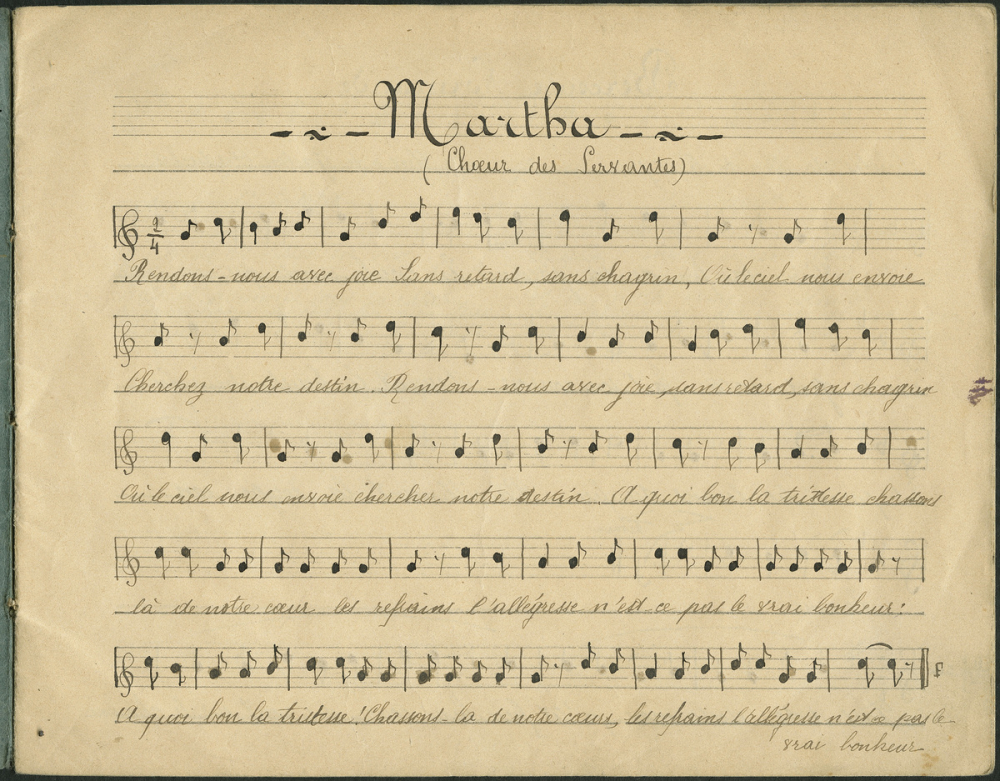 Martha
(Chœur des Servantes)
2/4
Rendons-nous avec joie Sans retard, sans chagrin, Où le ciel nous envoie
Cherchez notre destin. Rendons-nous avec joie, sans retard, sans chagrin
Où le ciel nous envoie chercher notre destin. A quoi bon la tristesse chassons
là de notre cœur les refrains l'allégresse n'est-ce pas le vrai bonheur!
A quoi bon la tristesse! Chassons-la de notre cœurs, les refrains l'allégresse n'est-ce pas le
vrai bonheur